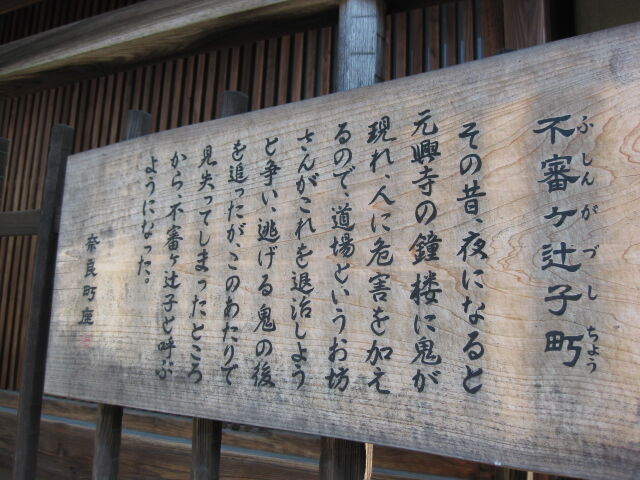 不審ヶ辻子町
ふしんがづしちょう
その昔、夜になると
元興寺の鐘楼に鬼が
現れ、人に危害を加え
るので、道場というお坊
さんがこれを退治しよう
と争い、逃げる鬼の後
を追ったが、このあたりで
見失ってしまったところ
から不審ヶ辻子と呼ぶ
ようになった。
奈良町座